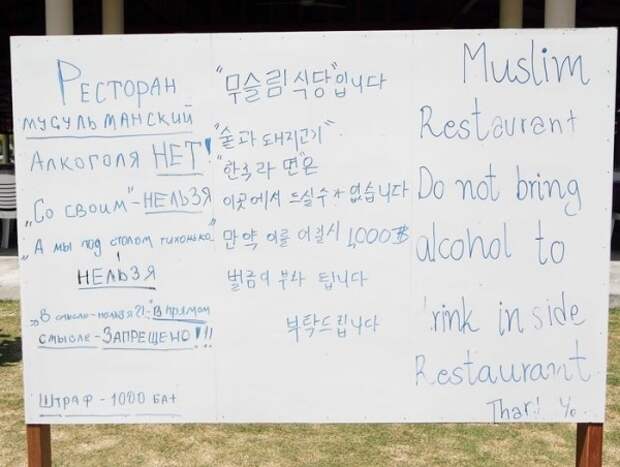 Ресторан
мусульманский
Алкоголя НЕТ!
"Со своим" - НЕЛЬЗЯ
"А мы под столом тихонько"
НЕЛЬЗЯ
"В смысле-нельзя?!-В прямом
смысле - ЗАПРЕЩЕНО!!!
ШТРАФ - 1000 БАТ
"무슬림 식당"입니다
"술과 돼지고기"
"한국라면"은
이곳에서 드실수가 없습니다
만약 이를 어길시 1,000฿
벌금이 부과 됩니다
부탁드립니다
Muslim
Restaurant
Do not bring
alcohol to
rink in side
Restaurant